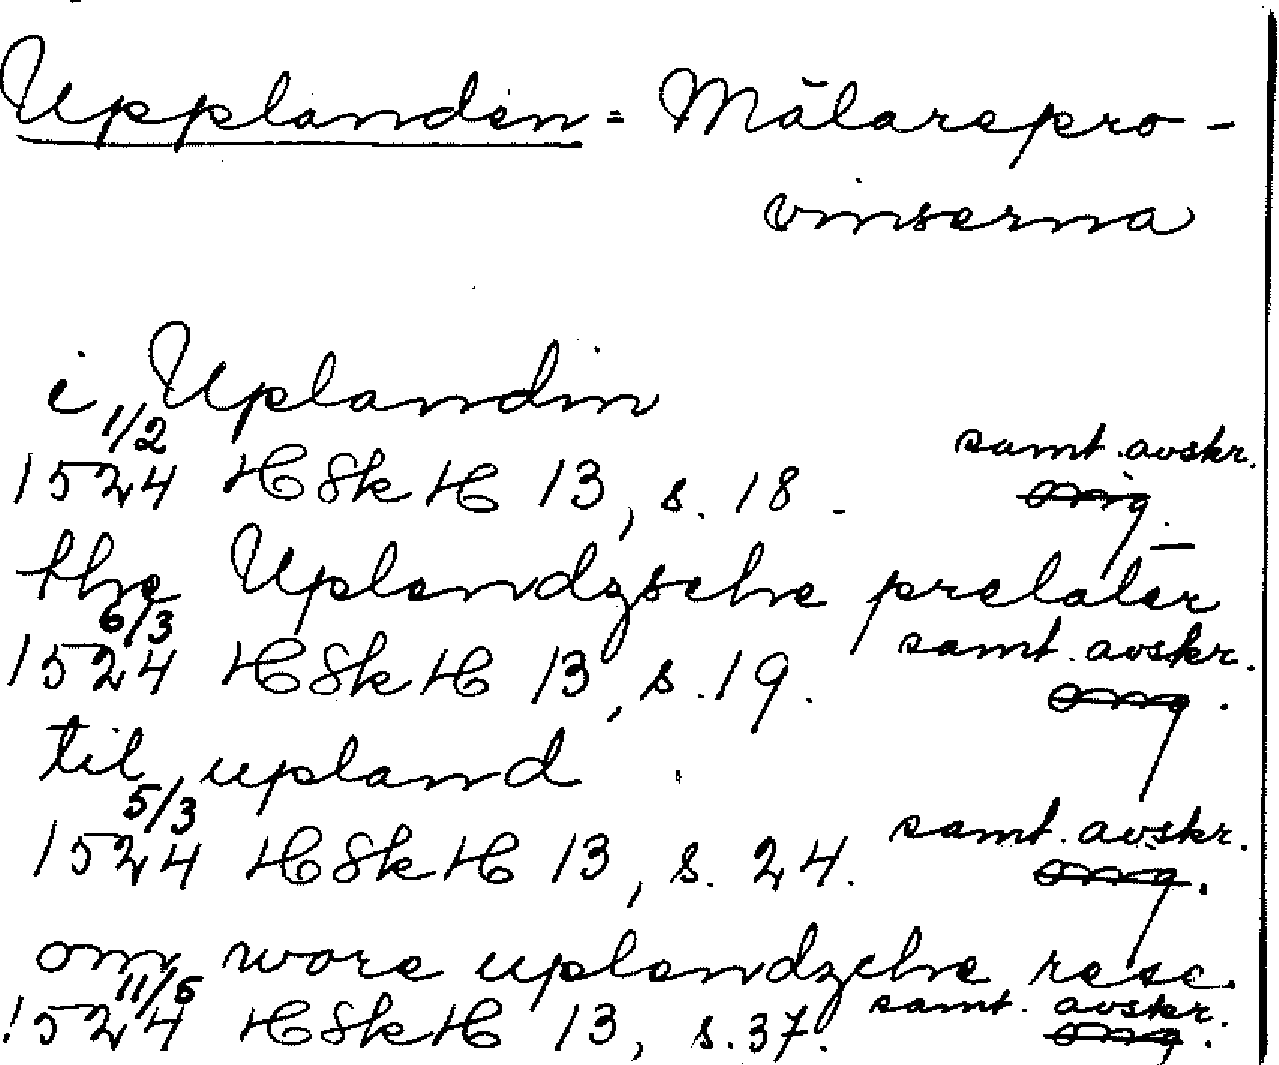 Upplanden = Mälarepro-
vinserna
i Uplandin
1/2
1524 HSkH 13, s. 18 - samt. avskr.
orig.
the Uplendzsche prelater
6/3
1524 HSkH 13, s. 19. samt. avskr.
orig.
til upland
5/3
1524 HSkH 13, s. 24. samt. avskr.
orig.
om wore uplendzche rese.
11/5
1524 HSkH 13, s. 37. samt. avskr.
orig.